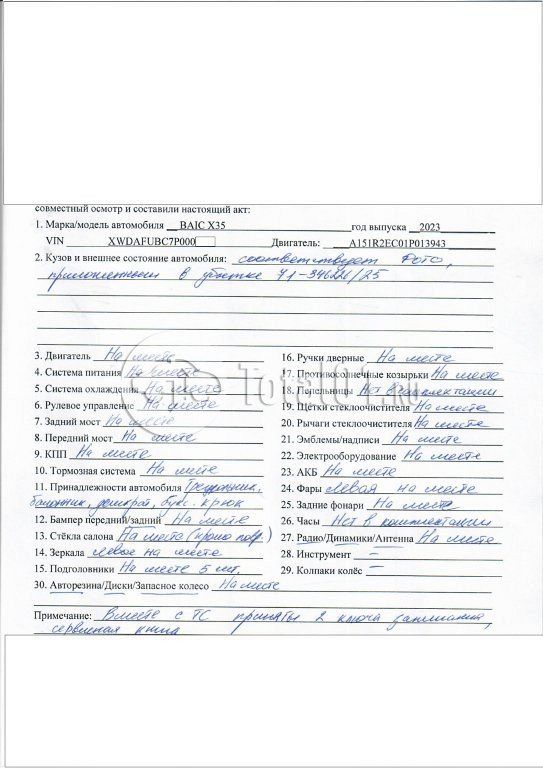 совместный осмотр и составили настоящий акт:
1. Марка/модель автомобиля BAIC X35 год выпуска 2023
VIN XWDAFUBC7P000 Двигатель: A151R2EC01P013943
2. Кузов и внешнее состояние автомобиля: соответствует фото,
приложенным в убытке 71-346220/25
3. Двигатель На месте
4. Система питания На месте
5. Система охлаждения На месте
6. Рулевое управление На месте
7. Задний мост На месте
8. Передний мост На месте
9. КПП На месте
10. Тормозная система На месте
11. Принадлежности автомобиля Треугольник,
балонник, домкрат, букс. крюк
12. Бампер передний/задний На месте
13. Стёкла салона На месте (кроме повр.)
14. Зеркала левое на месте
15. Подголовники На месте 5 шт.
16. Ручки дверные На месте
17. Противосолнечные козырьки На месте
18. Пепельницы Нет в комплектации
19. Щётки стеклоочистителя На месте
20. Рычаги стеклоочистителя На месте
21. Эмблемы/надписи На месте
22. Электрооборудование На месте
23. АКБ На месте
24. Фары Левая на месте
25. Задние фонари На месте
26. Часы Нет в комплектации
27. Радио/Динамики/Антенна На месте
28. Инструмент –
29. Колпаки колёс –
30. Авторезина/Диски/Запасное колесо На месте
Примечание: Вместе с ТС приняты 2 ключа зажигания,
сервисная книга
Total01.ru